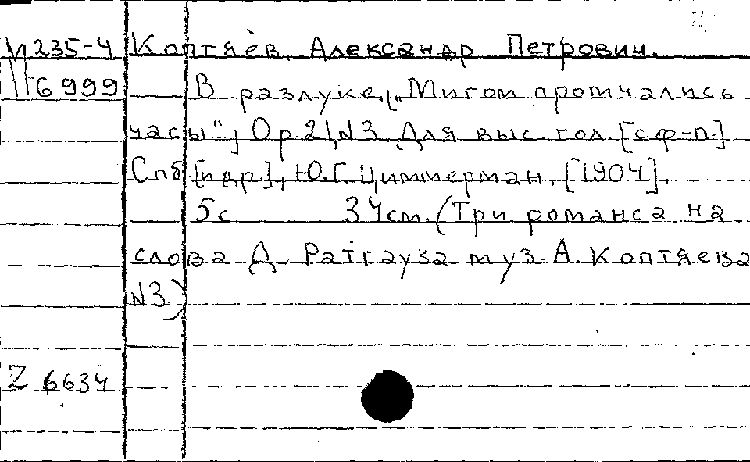 М 235-4 Коптяев, Александр Петрович.
6999 В разлуке. („Мигом промчались
часы"), Ор 21, N3 Для выс. гол. [с ф-п.]
Спб [и др.], Ю.Г. Циммерман, [1904].
5с 34см. (Три романса на
слова Д. Ратгауза муз А. Коптяева
N3)
Z 6634